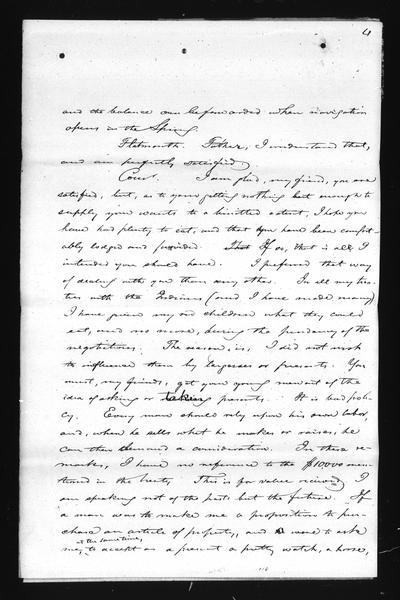 4
and the balance can be forwarded when navigation
opens in the Spring.
Flatmouth. Father, I understand that,
and am perfectly satisfied.
Com. I am glad, my friend, you are
satisfied, but, as to your getting nothing but enough to
supply your wants to a limited extent, I hope you
have had plenty to eat, and that you have been comfort-
ably lodged and provided. If so, that is all I
intended you should have. I preferred that way
of dealing with you than any other. In all my trea-
ties with the Indians (and I have made many)
I have given my red children what they could
eat, and no more, during the pendency of the
negotiations. The reason, is, I did not wish
to influence them by largesses or presents. You
must, my friends, get your young men out of the
idea of asking or taking presents. It is bad poli-
cy. Every man should rely upon his own labor,
and, when he sells what he makes or raises, he
can then demand a consideration. In these re-
marks, I have no reference to the $10000 men-
tioned in the treaty. This is for value received. I
am speaking not of the past but the future. If
a man was to make me a proposition to pur-
chase an article of property, and was to ask
at the same time,
me, to accept as a present a pretty watch, a horse,